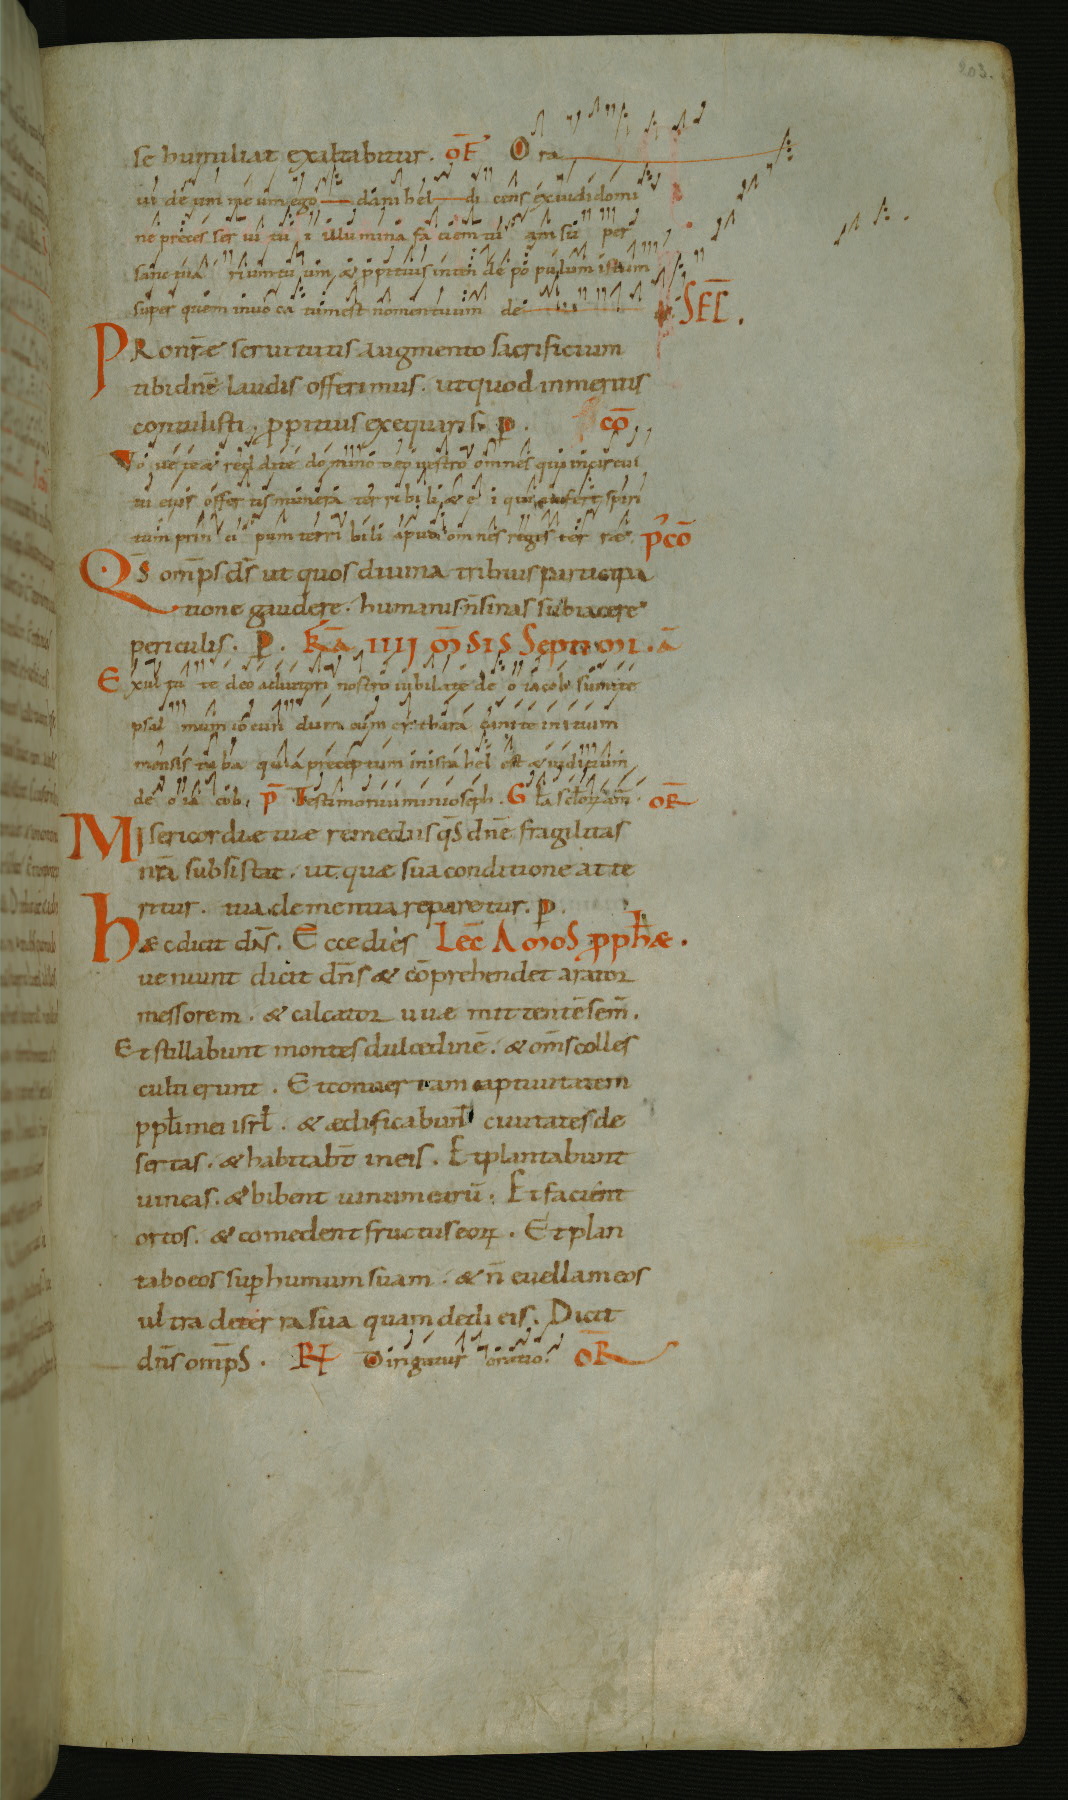 203.
se humiliat exaltabitur. OF̄ Ora
ui deum meum ego danihel dicens exaudi domi
ne preces serui tui illumina faciem tuam super
sanctuarium tuum & ꝓpitius intende populum istum
super quem inuocatum est nomen tuum de SEC̄.
PRo nr̄ae seruitutis augmento sacrificium
tibi dn̄e laudis offerimus. ut quod inmeritis
contulisti, ꝓpitius exequaris. P. CŌ
Vouete & reddite domino deo uestro omnes qui in circui
tu eius offertis munera terribili & ei qui aufert spiri
tum principum terribili apud omnes reges terrae. P̄CŌ
QS̄ om̄ps ds̄ ut quos diuina tribuis participa
tione gaudere. humanis n̄ sinas subiacere
periculis. P. K̄A IIII M̄SIS Septimi. Ā
Exultate deo adiutori nostro iubilate deo iacob sumite
psalmum iocundum cum cythara canite in initium
mensis tuba quia preceptum in israhel est & iudicium
deo iacob. P̄ Testimonium in ioseph. Gla seclorum am̄. OR̄
Misericordiae tuae remediis qs̄ dn̄e fragilitas
nr̄a subsistat. ut quae sua conditione atte
ritur. tua clementia reparetur. P.
haec dicit dn̄s. Ecce dies Lec̄ Amos ꝓph̄ae.
ueniunt dicit dn̄s & cōprehendet arator
messorem. & calcator uuae mittentē sem̄.
Et stillabunt montes dulcedinē. & om̄s colles
culti erunt. Et conuertam captiuitatem
ppli mei isrł. & aedificabunt ciuitates de
sertas. & habitabt̄ in eis. Et plantabunt
uineas. & bibent uinum earū. Et facient
ortos. & comedent fructus eoꝝ. Et plan
tabo eos suꝑ humum suam. & n̄ euellam eos
ultra de terra sua quam dedi eis. Dicit
dn̄s om̄ps. R Dirigatur oratio. OR̄